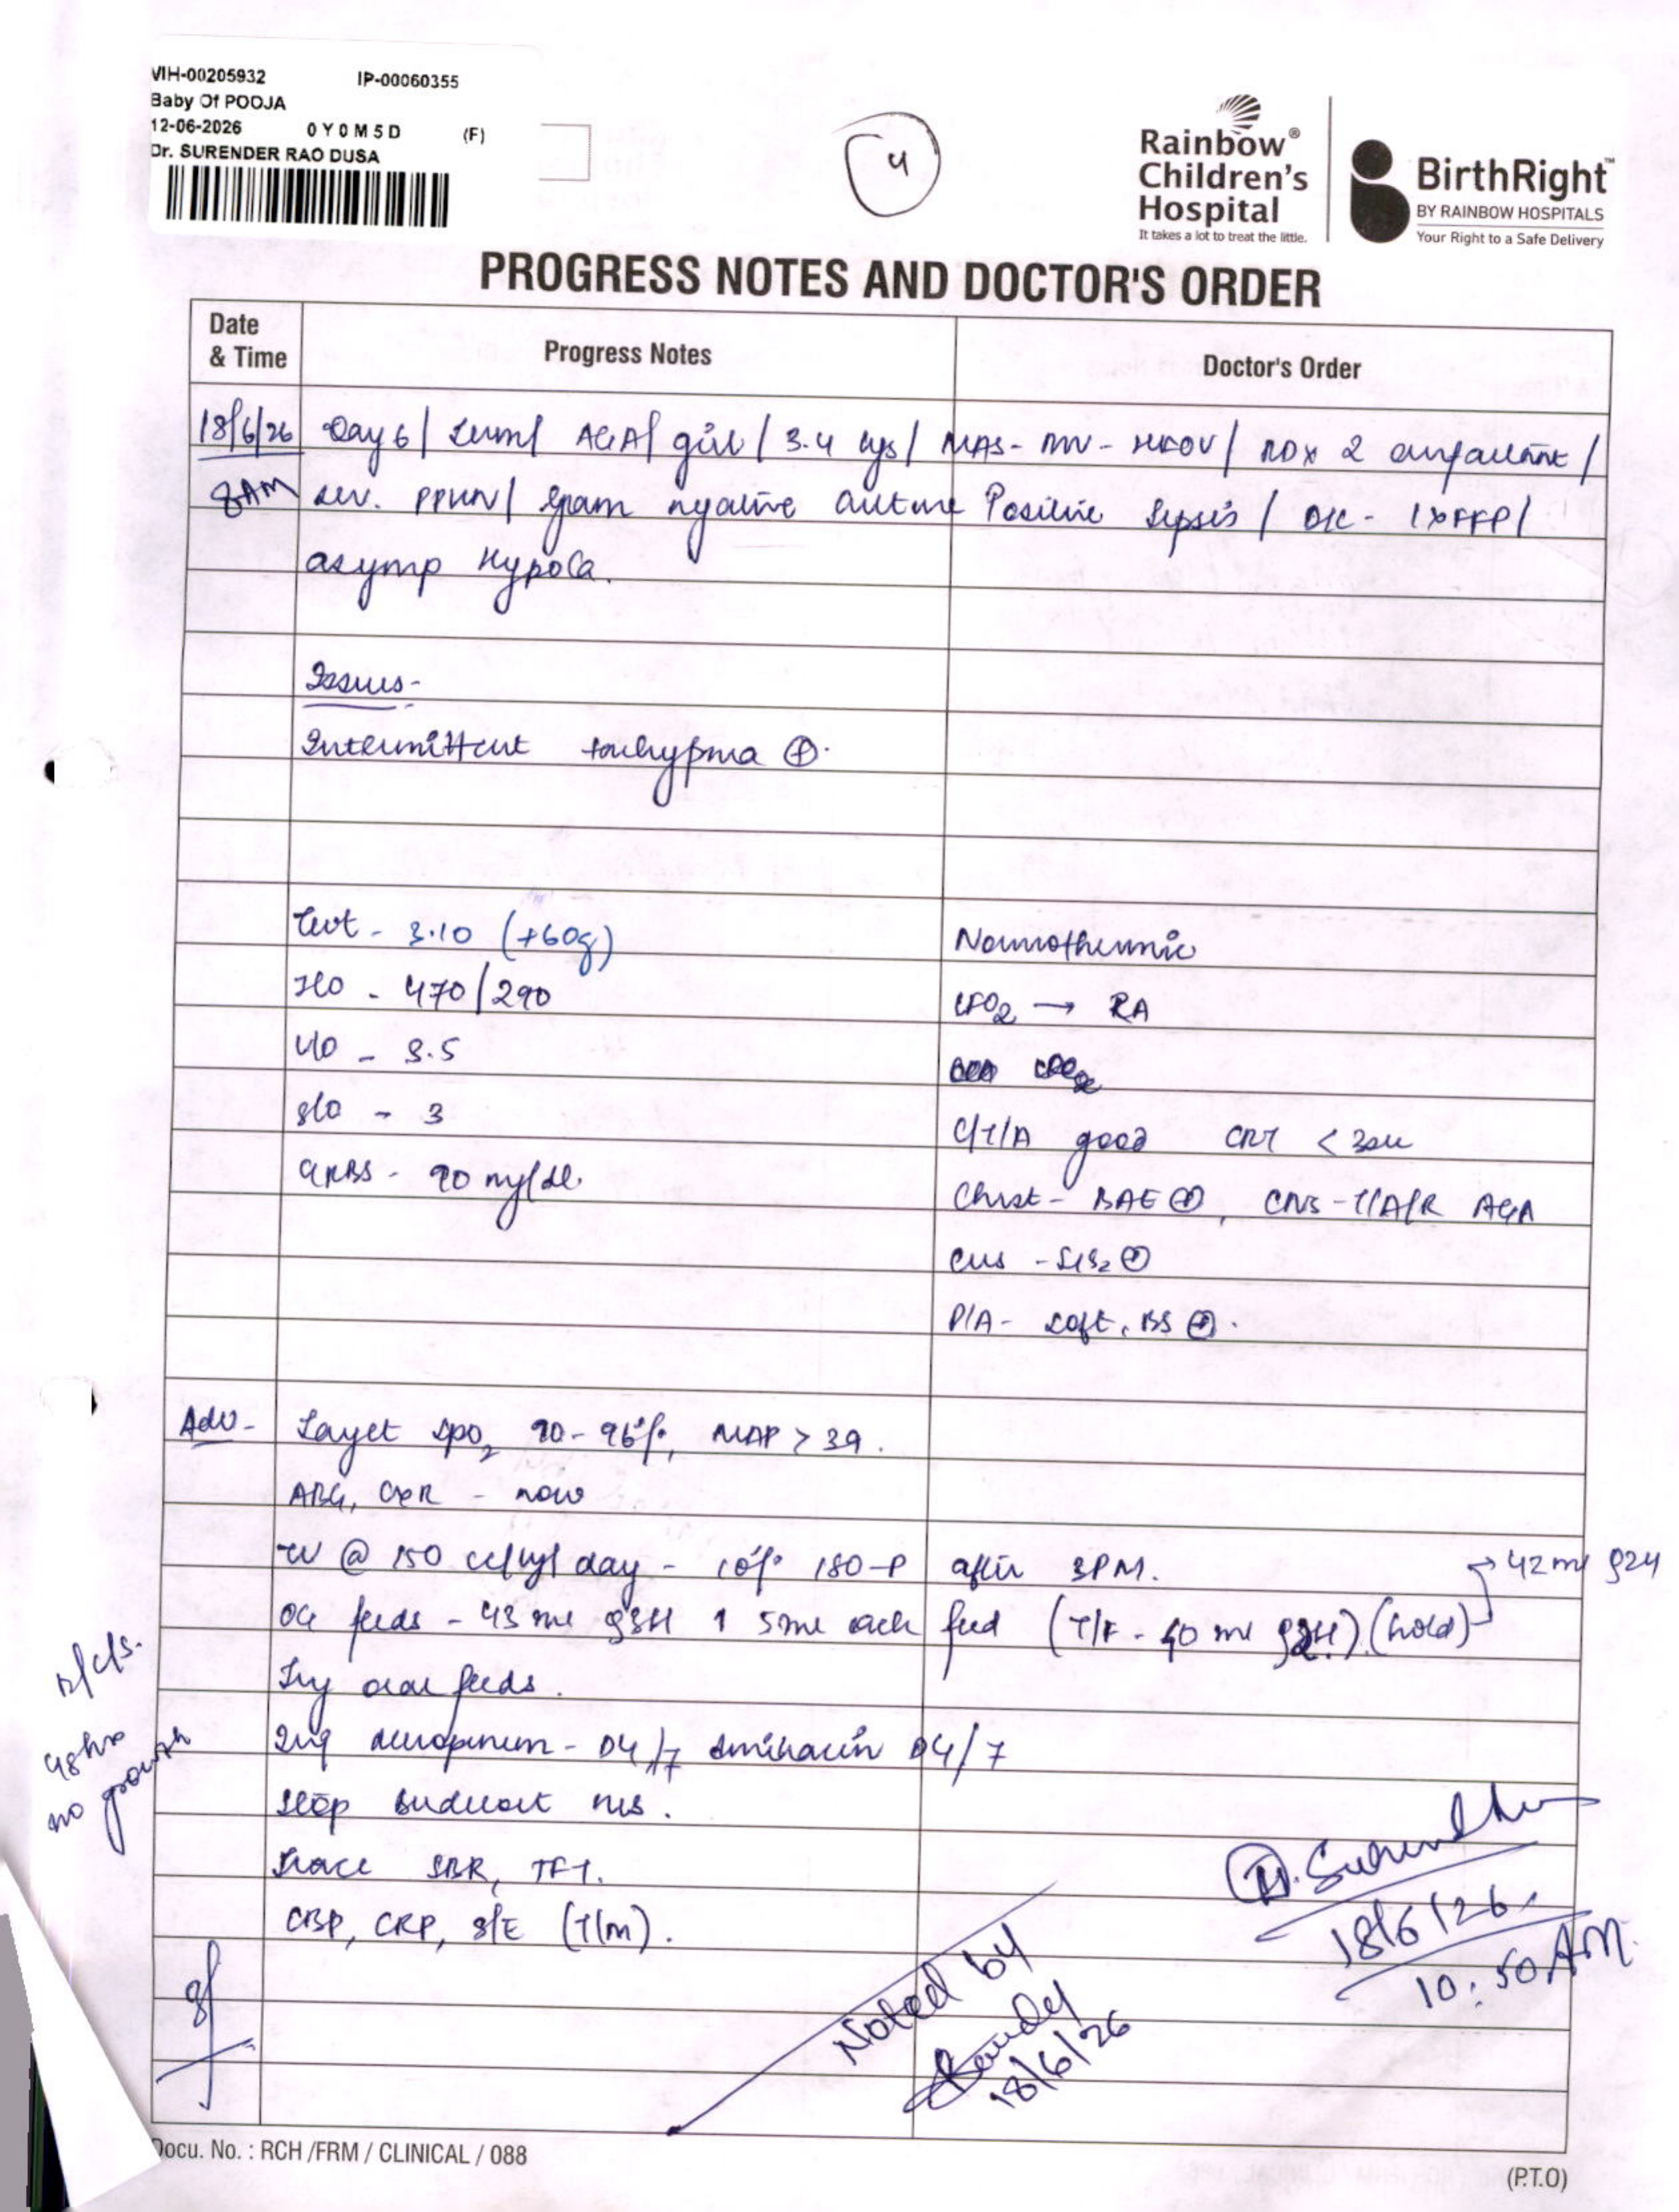 VIH-00205932 IP-00060355
Baby Of POOJA
12-06-2026 0Y0M5D (F)
Dr. SURENDER RAO DUSA
4
Rainbow®
Children's
Hospital
It takes a lot to treat the little.
BirthRight™
BY RAINBOW HOSPITALS
Your Right to a Safe Delivery
PROGRESS NOTES AND DOCTOR'S ORDER
Date & Time Progress Notes Doctor's Order
18/6/26 Day 6 / term / AGA / girl / 3.4 kgs / MAS - MV - HFOV / RD x 2 /
8AM sev. PPHN / Gram negative culture Positive Sepsis / DIC - 1xFFP /
asymp HypoCa.
Issues-
Intermittent tachypnea ⊕.
Twt - 3.10 (+60g) Normothermic
I/O - 470/290 RA
U/O - 3.5
S/O - 3 C/T/A good CRT < 3sec
GRBS - 90 mg/dl. Chest - BAE ⊕, CNS - T/A/R AGA
CVS - S1S2 ⊕
P/A - soft, BS ⊕.
Adv- Target SpO2 90-96%, MAP > 39.
ABG, CXR - now
TV @ 150 cc/kg/day - 10% 180-P after 3PM. → 42 ml q2H
OG feeds - 43 ml q3H ↑ 5ml each feed (T/F - 40 ml q2H) (hold)
Try oral feeds.
Inj meropenem - D4/7 Amikacin D4/7
Stop Budecort neb.
Trace SBR, TFT.
CBP, CRP, S/E (T/m).
48hrs
no growth
18/6/26
10:50 AM
Noted by
18/6/26
Docu. No. : RCH /FRM / CLINICAL / 088
(P.T.O)